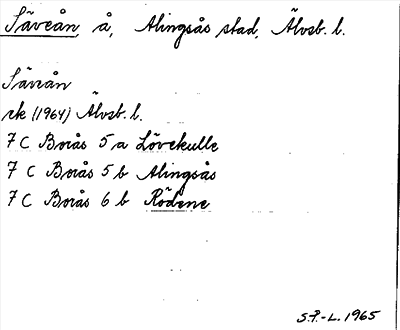 Säveån å, Alingsås stad, Älvsb. l.
Säveån
rk (1964) Älvsb. l.
7 C Borås 5 a Lövekulle
7 C Borås 5 b Alingsås
7 C Borås 6 b Rödene
S.P.-L. 1965